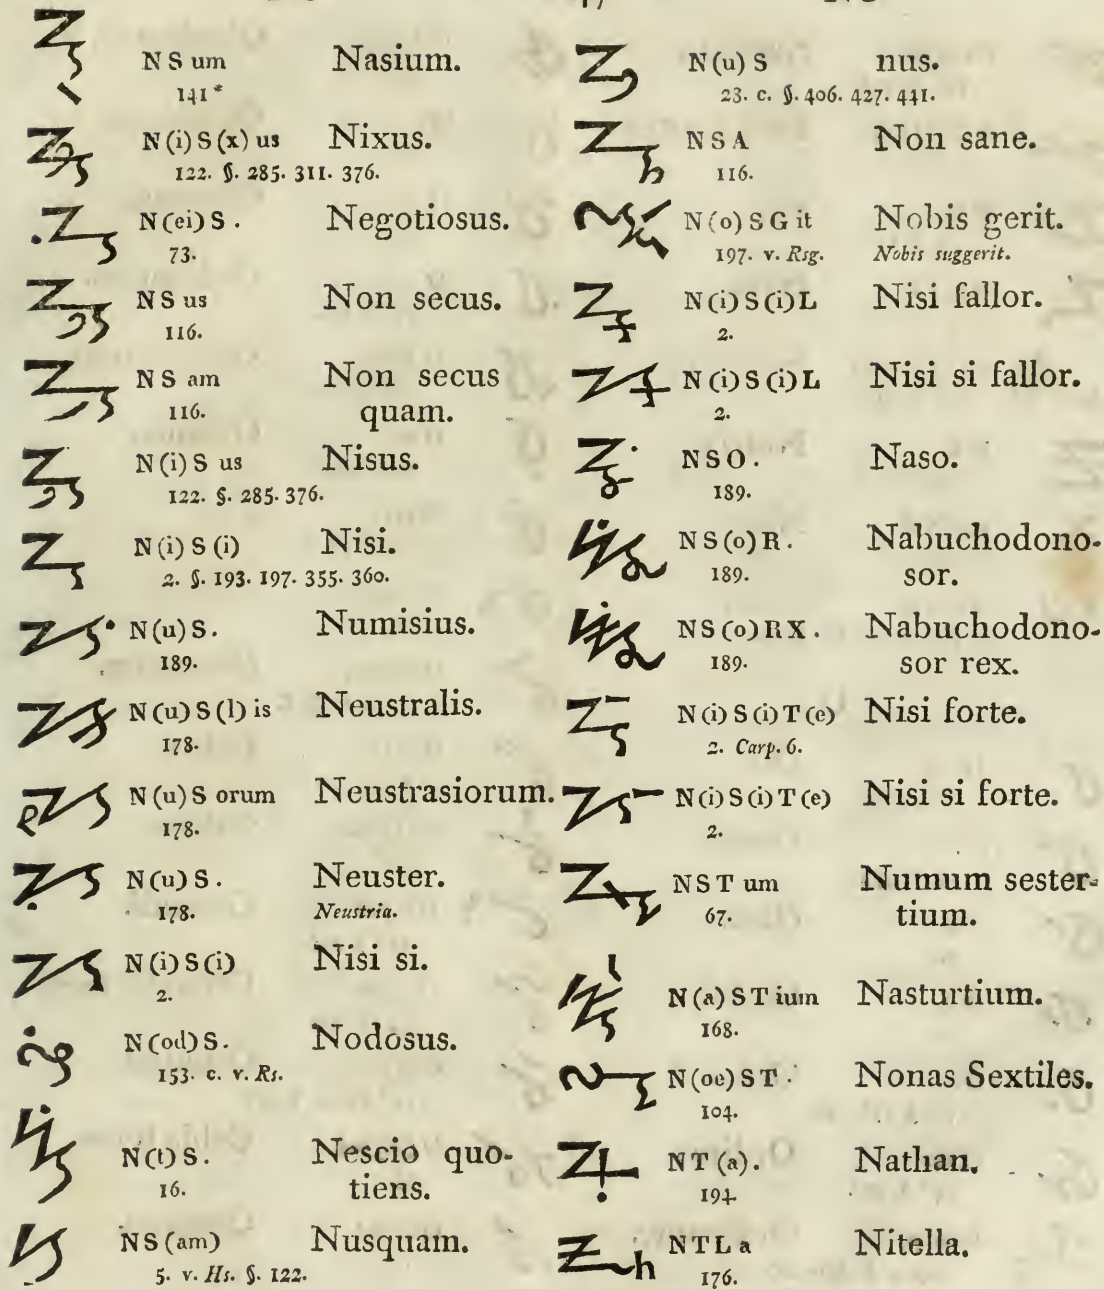 N S um Nasium.
141*
N (i) S (x) us Nixus.
122. §. 285. 311. 376.
N (ei) S . Negotiosus.
73.
N S us Non secus.
116.
N S am Non secus
116. quam.
N (i) S us Nisus.
122. §. 285. 376.
N (i) S (i) Nisi.
2. §. 193. 197. 355. 360.
N (u) S. Numisius.
189.
N (u) S (l) is Neustralis.
178.
N (u) S orum Neustrasiorum.
178.
N (u) S. Neuster.
178. Neustria.
N (i) S (i) Nisi si.
2.
N (od) S. Nodosus.
153. c. v. Rs.
N (t) S. Nescio quo-
16. tiens.
N S (am) Nusquam.
5. v. Hs. §. 122.
N (u) S nus.
23. c. §. 406. 427. 441.
N S A Non sane.
116.
N (o) S G it Nobis gerit.
197. v. Rsg. Nobis suggerit.
N (i) S (i) L Nisi fallor.
2.
N (i) S (i) L Nisi si fallor.
2.
N S O . Naso.
189.
N S (o) R . Nabuchodono-
189. sor.
N S (o) R X . Nabuchodono-
189. sor rex.
N (i) S (i) T (e) Nisi forte.
2. Carp. 6.
N (i) S (i) T (e) Nisi si forte.
2.
N S T um Numum sester-
67. tium.
N (a) S T ium Nasturtium.
168.
N (oe) S T . Nonas Sextiles.
104.
N T (a). Nathan.
194.
N T L a Nitella.
176.